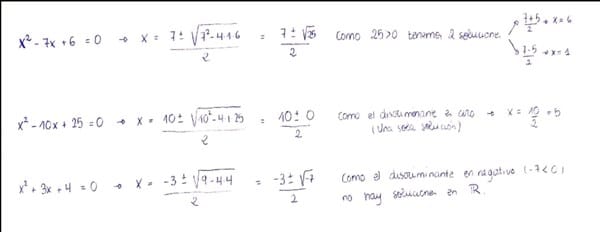 x² - 7x + 6 = 0 → x = 7 ± √7² - 4·1·6 / 2 = 7 ± √25 / 2 Como 25>0 tenemos 2 soluciones 7+5 / 2 → x = 6
7-5 / 2 → x = 1
x² - 10x + 25 = 0 → x = 10 ± √10² - 4·1·25 / 2 = 10 ± 0 / 2 Como el discriminante es cero → x = 10 / 2 = 5
(Una sola solución)
x² + 3x + 4 = 0 → x = -3 ± √9 - 4·4 / 2 = -3 ± √-7 / 2 Como el discriminante en negativo (-7<0)
no hay soluciones en ℝ.